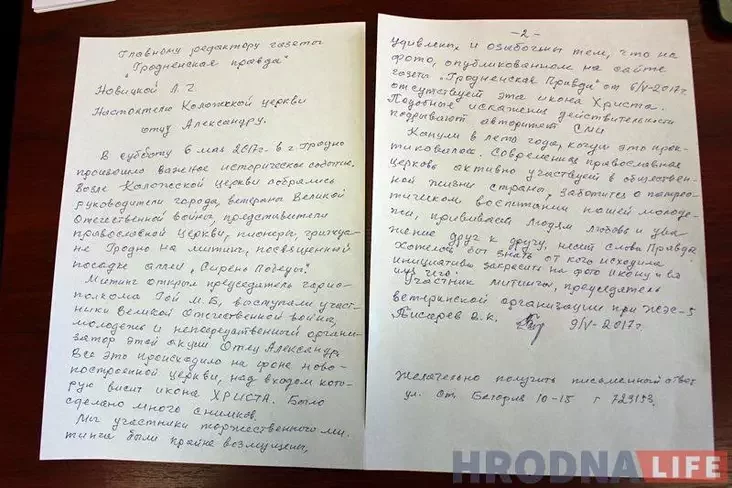 Главному редактору газеты
"Гродненская правда"
Новицкой Л.Г
Настоятелю Коложской церкви
отцу Александру.
В субботу 6 мая 2017г. в г. Гродно
произошло важное историческое событие.
Возле Коложеской Церкви собрались
руководители города, ветераны Великой
Отечественной война, представители
православной Церкви, пионеры, граждане
Гродно на митинг, посвященный
посадке аллеи "Сирень Победы".
Митинг открыл председатель горис-
полкома Гой М.Б, выступали участ-
ники Великой Отечественной война,
молодежь и непосредственный органи-
затор этой акции Отец Александр.
Все это происходило на фоне ново-
построенной Церкви, над входом кото-
рую висит икона ХРИСТА. Было
сделано много снимков.
Мы участники торжественного ми-
тинга были крайне возмущены,
-2-
удивлены и озабочены тем, что на
фото, опубликованном на сайте
газеты "Гродненская Правда" от 6/V-2017г
отсутствует эта икона Христа.
Подобные искажения действительности
подрывают авторитет СМИ
Канули в лето года, когда это прак-
тиковалось. Современная православная
церковь активно участвует в обществен-
ной жизни страны, заботится о патрио-
тическом воспитании нашей молоде-
жи, прививает людям любовь и ува-
жение друг к другу, несет слово Правда
Хотелось бы знать от кого исходила
инициатива закрасить на фото икону и за
из чего?
Участник митинга, председатель
ветеранской организации при ЖЭС-5
Писарев В.К. 9/V-2017г.
Желательно получить письменный ответ
ул. Ст. Батория 10-15 т 723153.
HRODNA LIFE